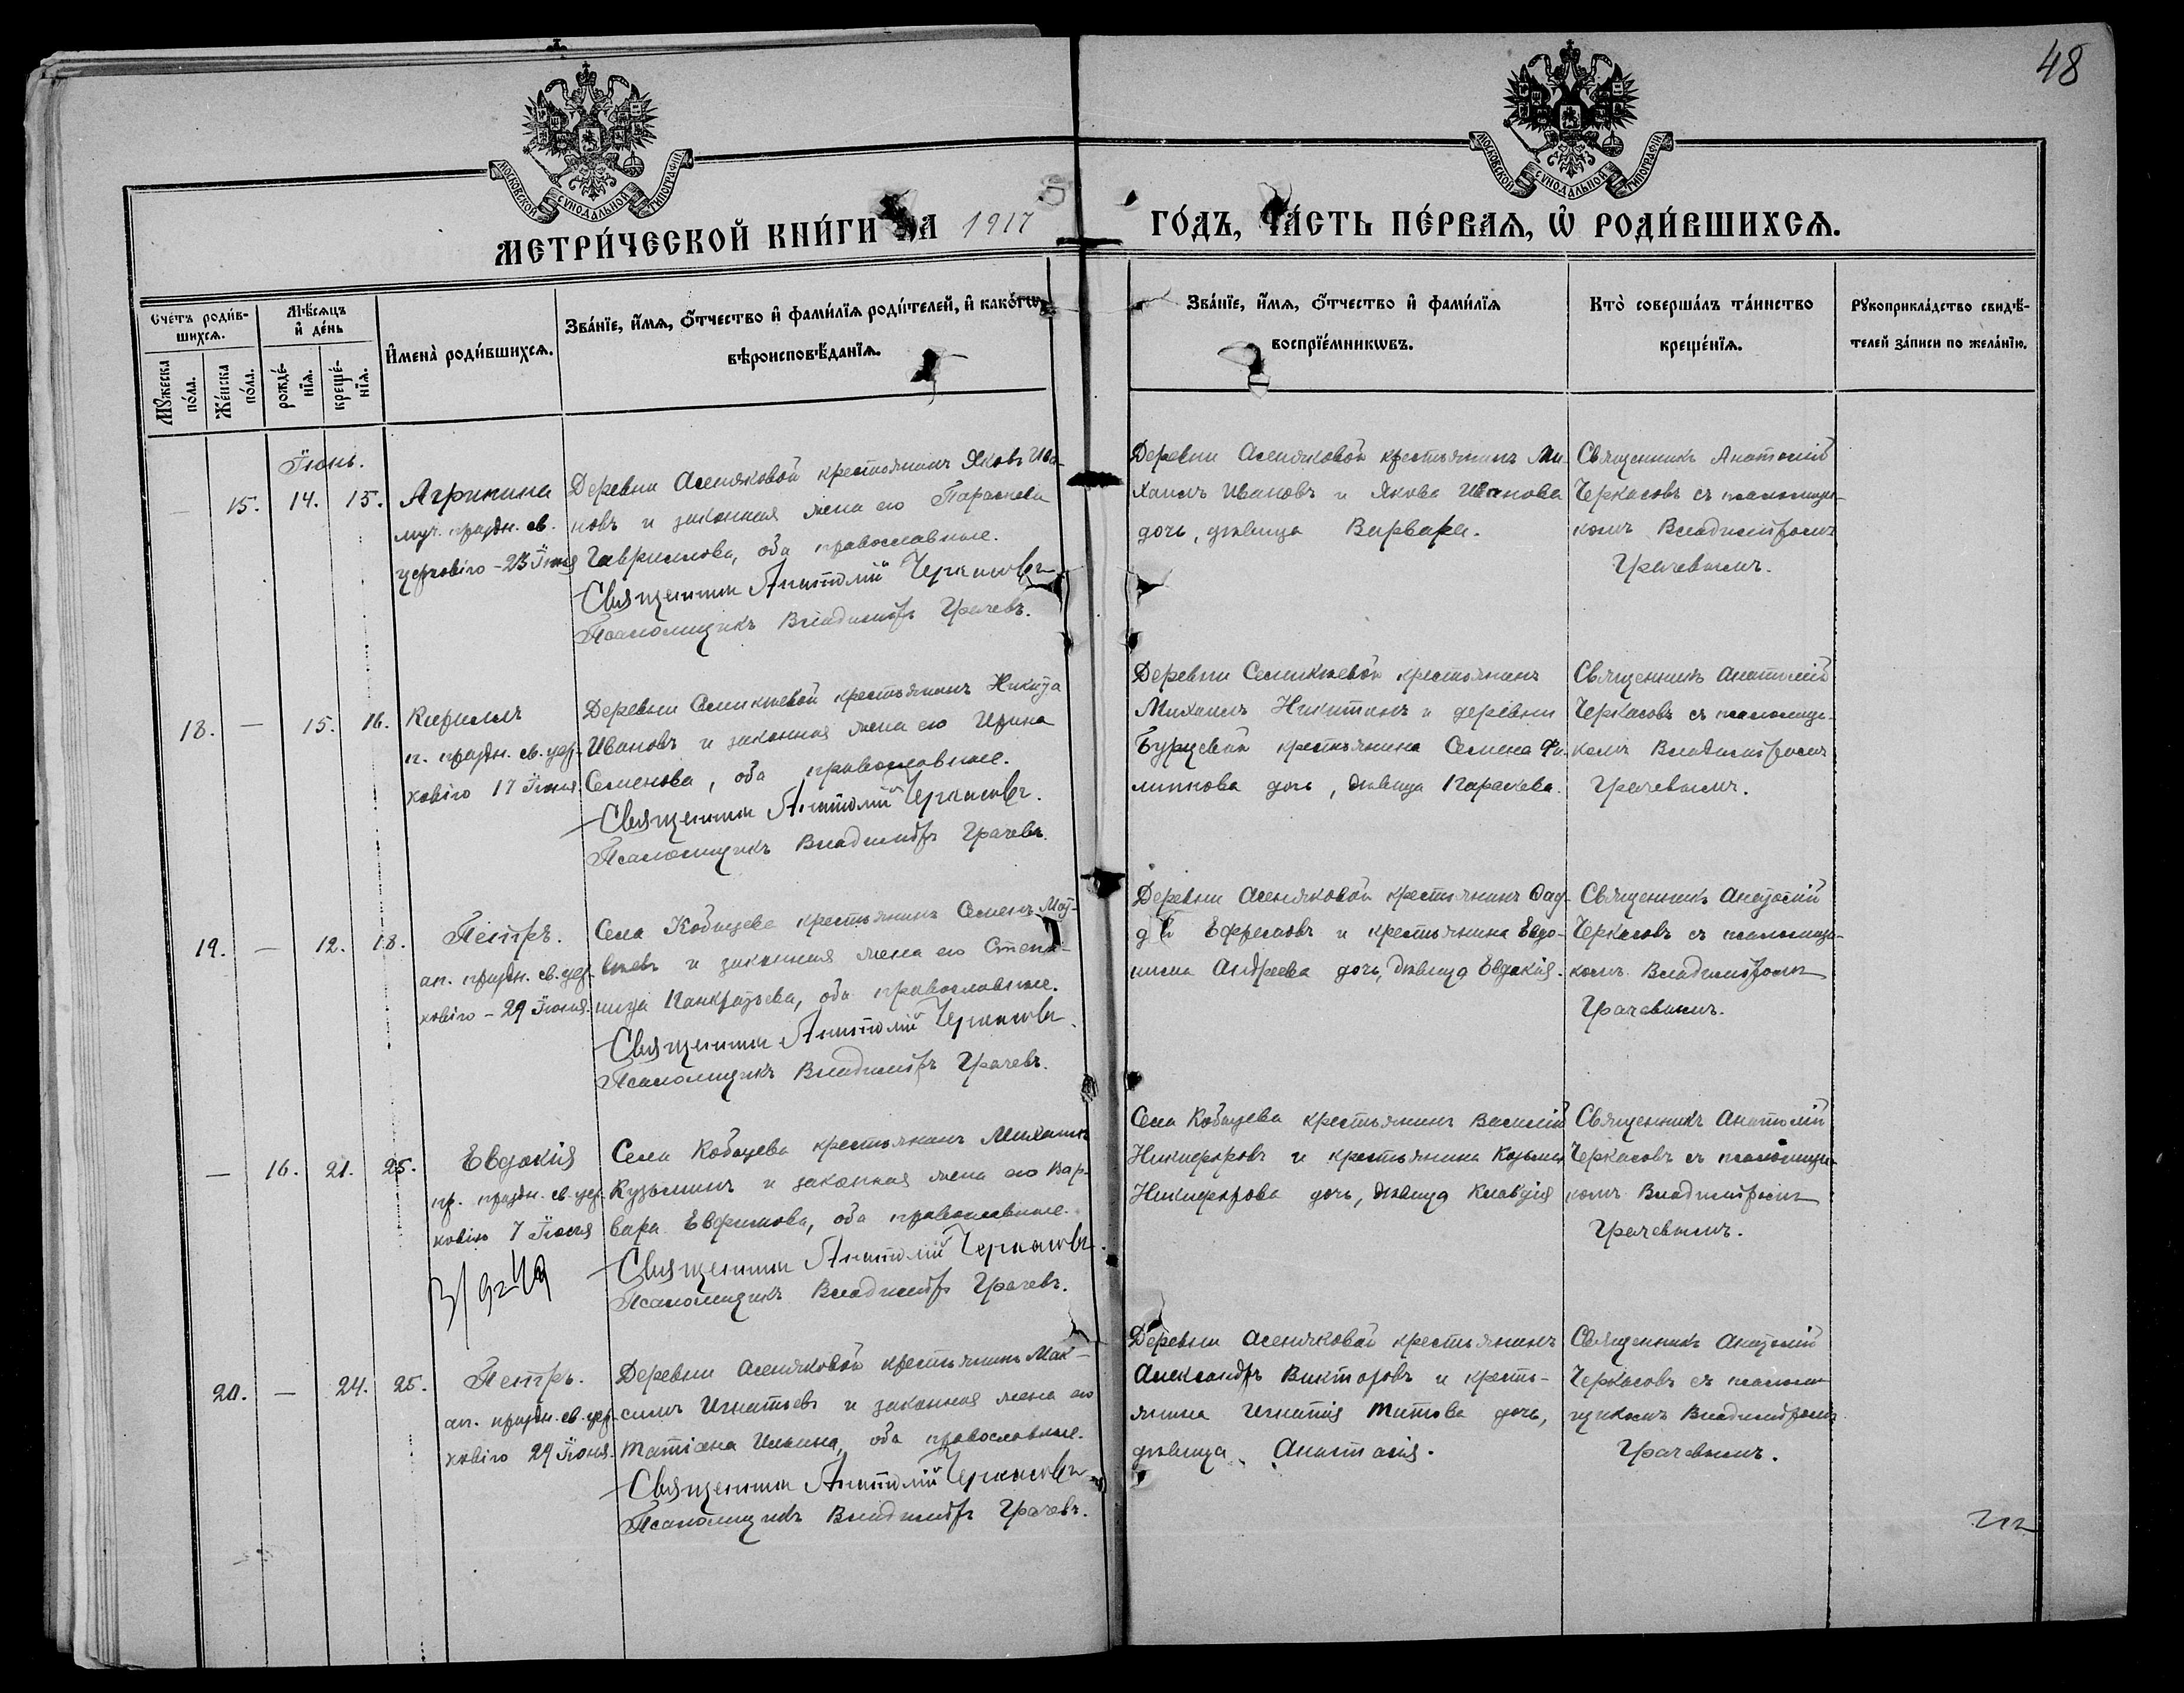 48
МОСКОВСКОЙ СѴНОДАЛЬНОЙ ТИПОГРАФІИ
МОСКОВСКОЙ СѴНОДАЛЬНОЙ ТИПОГРАФІИ
МЕТРИ́ЧЕСКОЙ КНИ́ГИ НА 1917 ГО́ДЪ, ЧА́СТЬ ПЕ́РВАѦ, Ѡ҆ РОДИ́ВШИХСѦ.
Сче́тъ роди́в-
шихсѧ.
Мꙋ́жеска по́ла.
Же́нска по́ла.
Мѣ́сѧцъ и҆ де́нь
рожде́-
нїѧ.
креще́-
нїѧ.
И҆мена̀ роди́вшихсѧ.
Зва́нїе, и҆́мѧ, ѻ҆́тчество и҆ фами́лїѧ роди́телей, и҆ како́гѡ
вѣроисповѣ́данїѧ.
Зва́нїе, и҆́мѧ, ѻ҆́тчество и҆ фами́лїѧ
воспрїе́мникѡвъ.
Кто̀ соверша́лъ та́инство
креще́нїѧ.
Рꙋкоприкла́дство свидѣ́-
телей за́писи по жела́нїю.
Іюнь.
— 15. 14. 15.
Агрипина
муч. праздн. св.
церковію – 23 Іюня
Деревни Асеняковой крестьянинъ Яковъ Ива-
новъ и законная жена его Параскева
Гаврилова, оба православные.
Священникъ Анатолій Черкасовъ
Псаломщикъ Владиміръ Грачевъ.
Деревни Асеняковой крестьянинъ Ми-
хаилъ Ивановъ и Якова Иванова
дочь, дѣвица Варвара.
Священникъ Анатолій
Черкасовъ съ псаломщи-
комъ Владиміромъ
Грачевымъ.
18. — 15. 16.
Кириллъ
п. праздн. св. цер-
ковію 17 Іюня
Деревни Семикневой крестьянинъ Никита
Ивановъ и законная жена его Ирина
Семенова, оба православные.
Священникъ Анатолій Черкасовъ.
Псаломщикъ Владиміръ Грачевъ.
Деревни Семикневой крестьянинъ
Михаилъ Никитинъ и деревни
Бурцевой крестьянина Семена Фи-
липпова дочь, дѣвица Параскева.
Священникъ Анатолій
Черкасовъ съ псаломщи-
комъ Владиміромъ
Грачевымъ.
19. — 12. 18.
Петръ.
ап. праздн. св. цер-
ковію – 29 Іюня.
Села Кобыцева крестьянинъ Семенъ Мат-
вѣевъ и законная жена его Степа-
нида Панкратьева, оба православные.
Священникъ Анатолій Черкасовъ.
Псаломщикъ Владиміръ Грачевъ.
Деревни Асеняковой крестьянинъ Фад-
дѣй Ефремовъ и крестьянина Евдо-
кима Андреева дочь, дѣвица Евдокія.
Священникъ Анатолій
Черкасовъ съ псаломщи-
комъ Владиміромъ
Грачевымъ.
— 16. 21. 25.
Евдокія
пр. праздн. св. цер-
ковію 7 Іюля
Села Кобыцева крестьянинъ Михаилъ
Кузьминъ и законная жена его Вар-
вара Евфимова, оба православные.
Священникъ Анатолій Черкасовъ.
Псаломщикъ Владиміръ Грачевъ.
Села Кобыцева крестьянинъ Василій
Никифоровъ и крестьянина Козьмы
Никифорова дочь, дѣвица Клавдія
Священникъ Анатолій
Черкасовъ съ псаломщи-
комъ Владиміромъ
Грачевымъ.
20. — 24. 25.
Петръ.
ап. праздн. св. цер-
ковію 29 Іюня.
Деревни Асеняковой крестьянинъ Мак-
симъ Игнатьевъ и законная жена его
Татіана Ильина, оба православные.
Священникъ Анатолій Черкасовъ
Псаломщикъ Владиміръ Грачевъ.
Деревни Асеняковой крестьянинъ
Александръ Викторовъ и кресть-
янина Игнатія Титова дочь,
дѣвица Анастасія.
Священникъ Анатолій
Черкасовъ съ псалом-
щикомъ Владиміромъ
Грачевымъ.